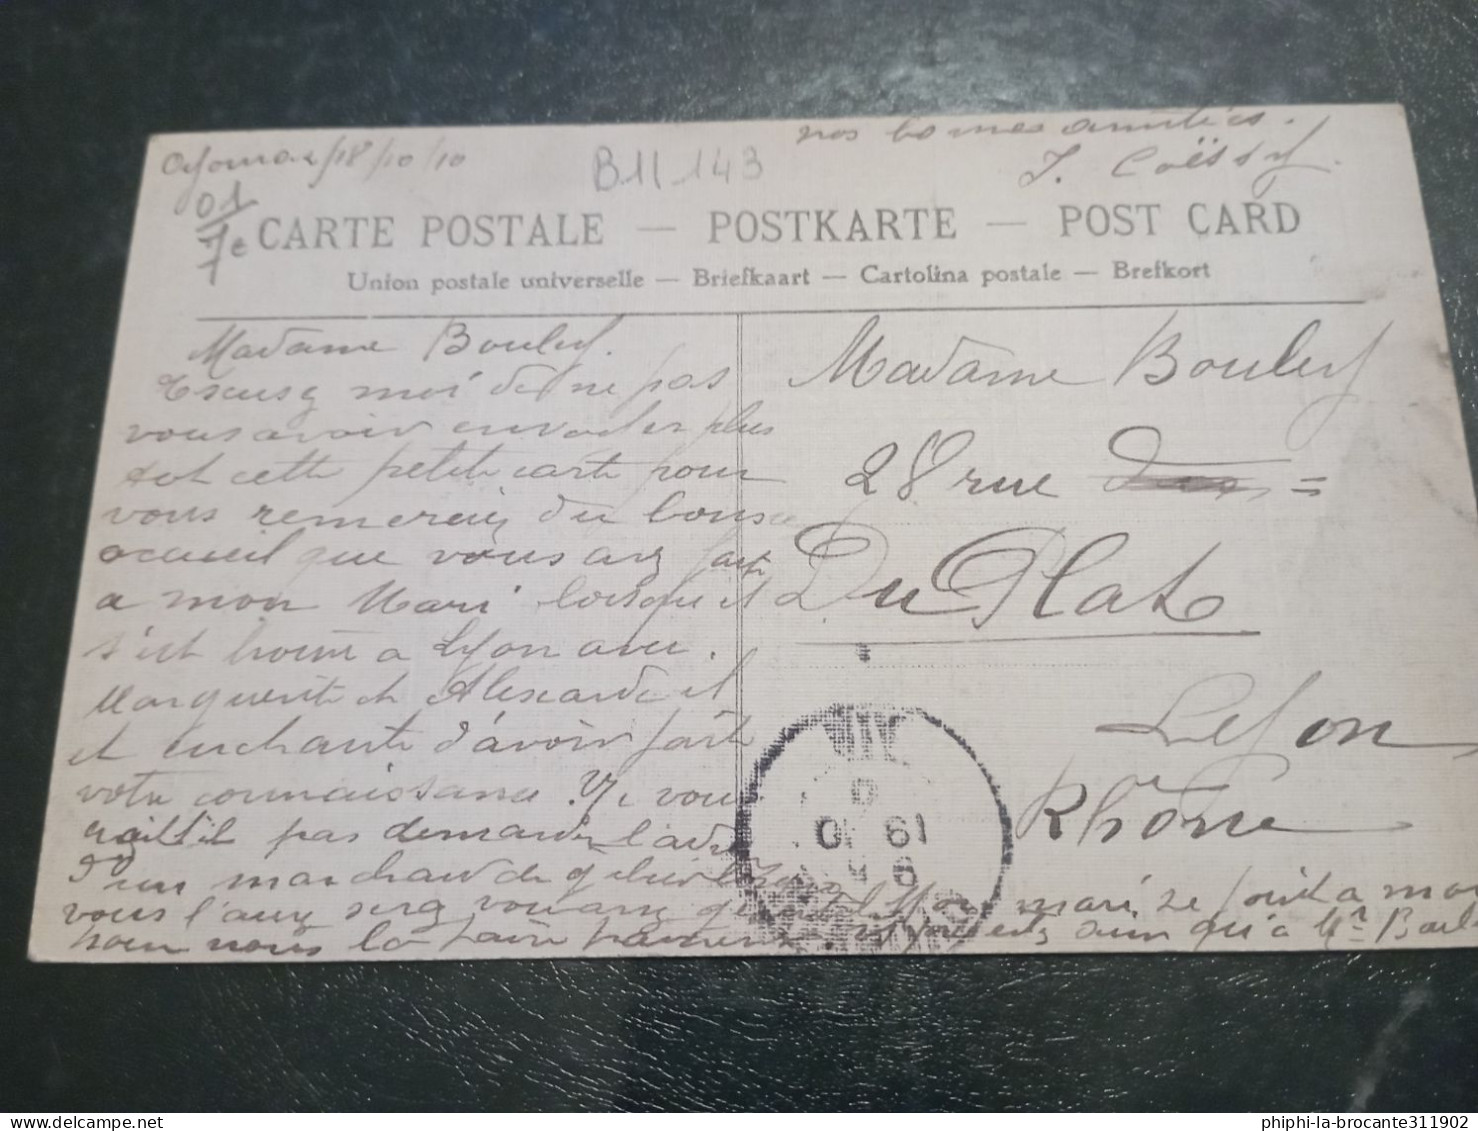 Oyonnax 18/10/10
B11.143
nos bonnes amitiés.
J. Coëssy.
01
7e
CARTE POSTALE — POSTKARTE — POST CARD
Union postale universelle — Briefkaart — Cartolina postale — Brefkort
Madame Bouley.
Escusez moi de ne pas
vous avoir envoder plus
tot cette petite carte pour
vous remerciez du bons
accueil que vous avez fait
a mon Mari lorsque il
s'est trouvé a Lyon avec.
Marguerite et Alexandre il
et enchanté d'avoir faite
votre connaissance. Ne vous
rait-il pas demander l'adresse
d'un marchand de
vous l'avez serez vous assez mon mari se joint a moi
pour nous la faire parvenir ainsi qu'a Mr Boul
Madame Bouley
28 rue =
Du Plat
Lyon
Rhône
19
10
phiphi-la-brocante311902
delcampe.net